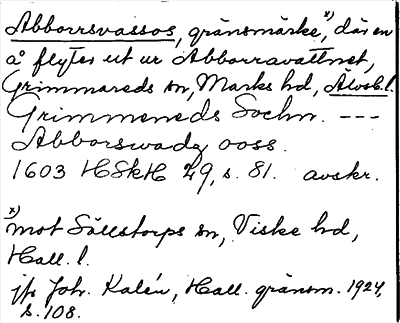 Abborrsvassos, gränsmärke,ˣ⁾ där en
å flyter ut ur Abborravattnet,
Grimmareds sn, Marks hd, Älvsb. l.
Grimmeneds Sochn. ---
Abborswadz ooss.
1603 HSkH 29, s. 81. avskr.
ˣ⁾ mot Sällstorps sn, Viske hd,
Hall. l.
jfr Joh. Kalén, Hall. gränsm. 1924,
s. 108.